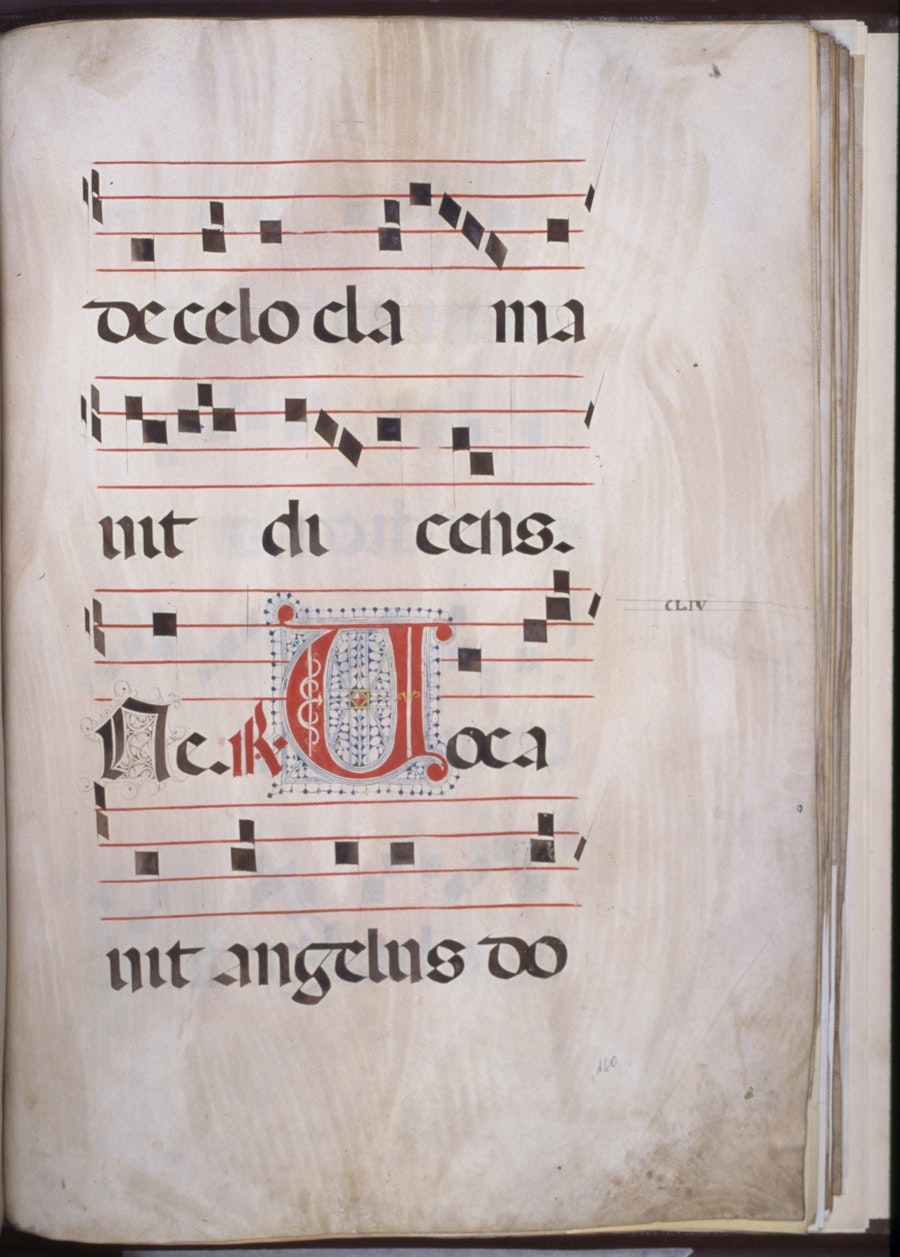 de celo cla ma
uit di cens.
CLIV
Ne. R. Uoca
uit angelus do
160